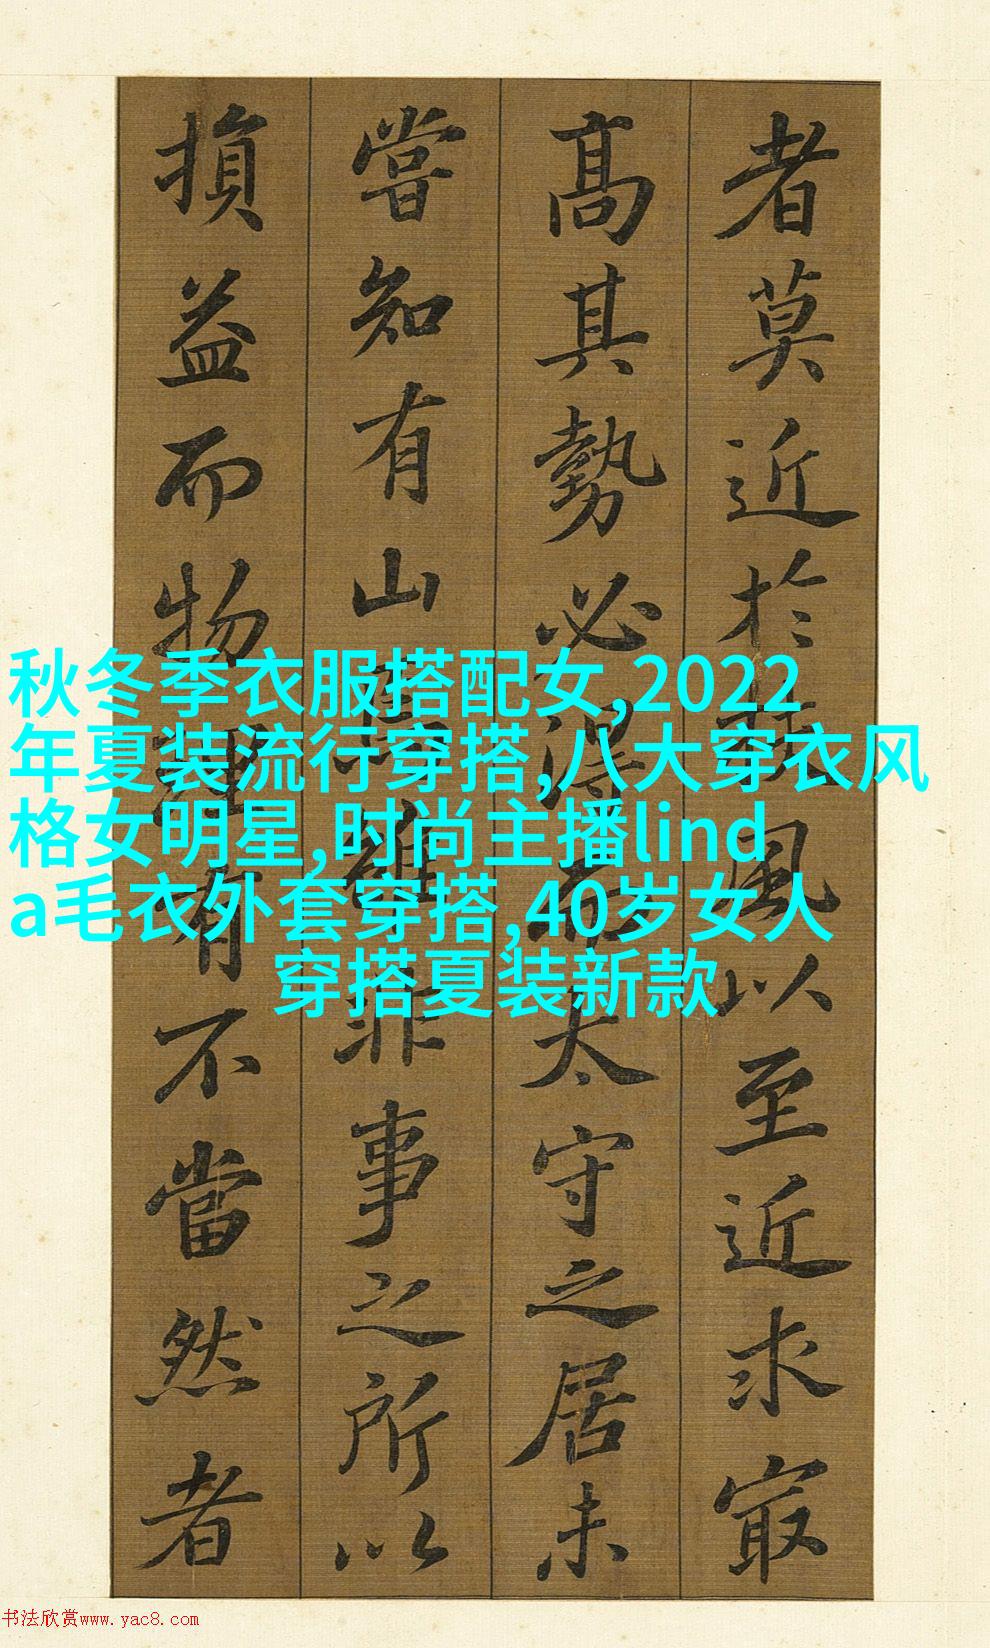 者莫近於扶風以至近求㝡
髙其勢必得而太守之居未
嘗知有山焉雖非事之所以
損益而物理有不當然者
秋冬季衣服搭配女,2022
年夏装流行穿搭,八大穿衣风
格女明星,时尚主播lind
a毛衣外套穿搭,40岁女人
穿搭夏装新款
书法欣赏www.yac8.com